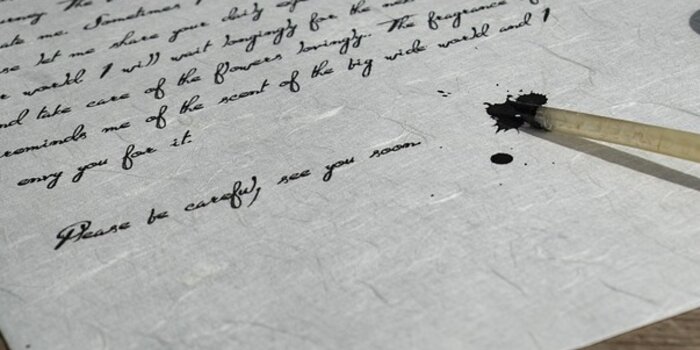 The
me. Sometimes I
me share your daily
world I will wait longingly for the
and take care of the flowers lovingly. The fragrance
reminds me of the scent of the big wide world and I
envy you for it.
Please be careful, see you soon